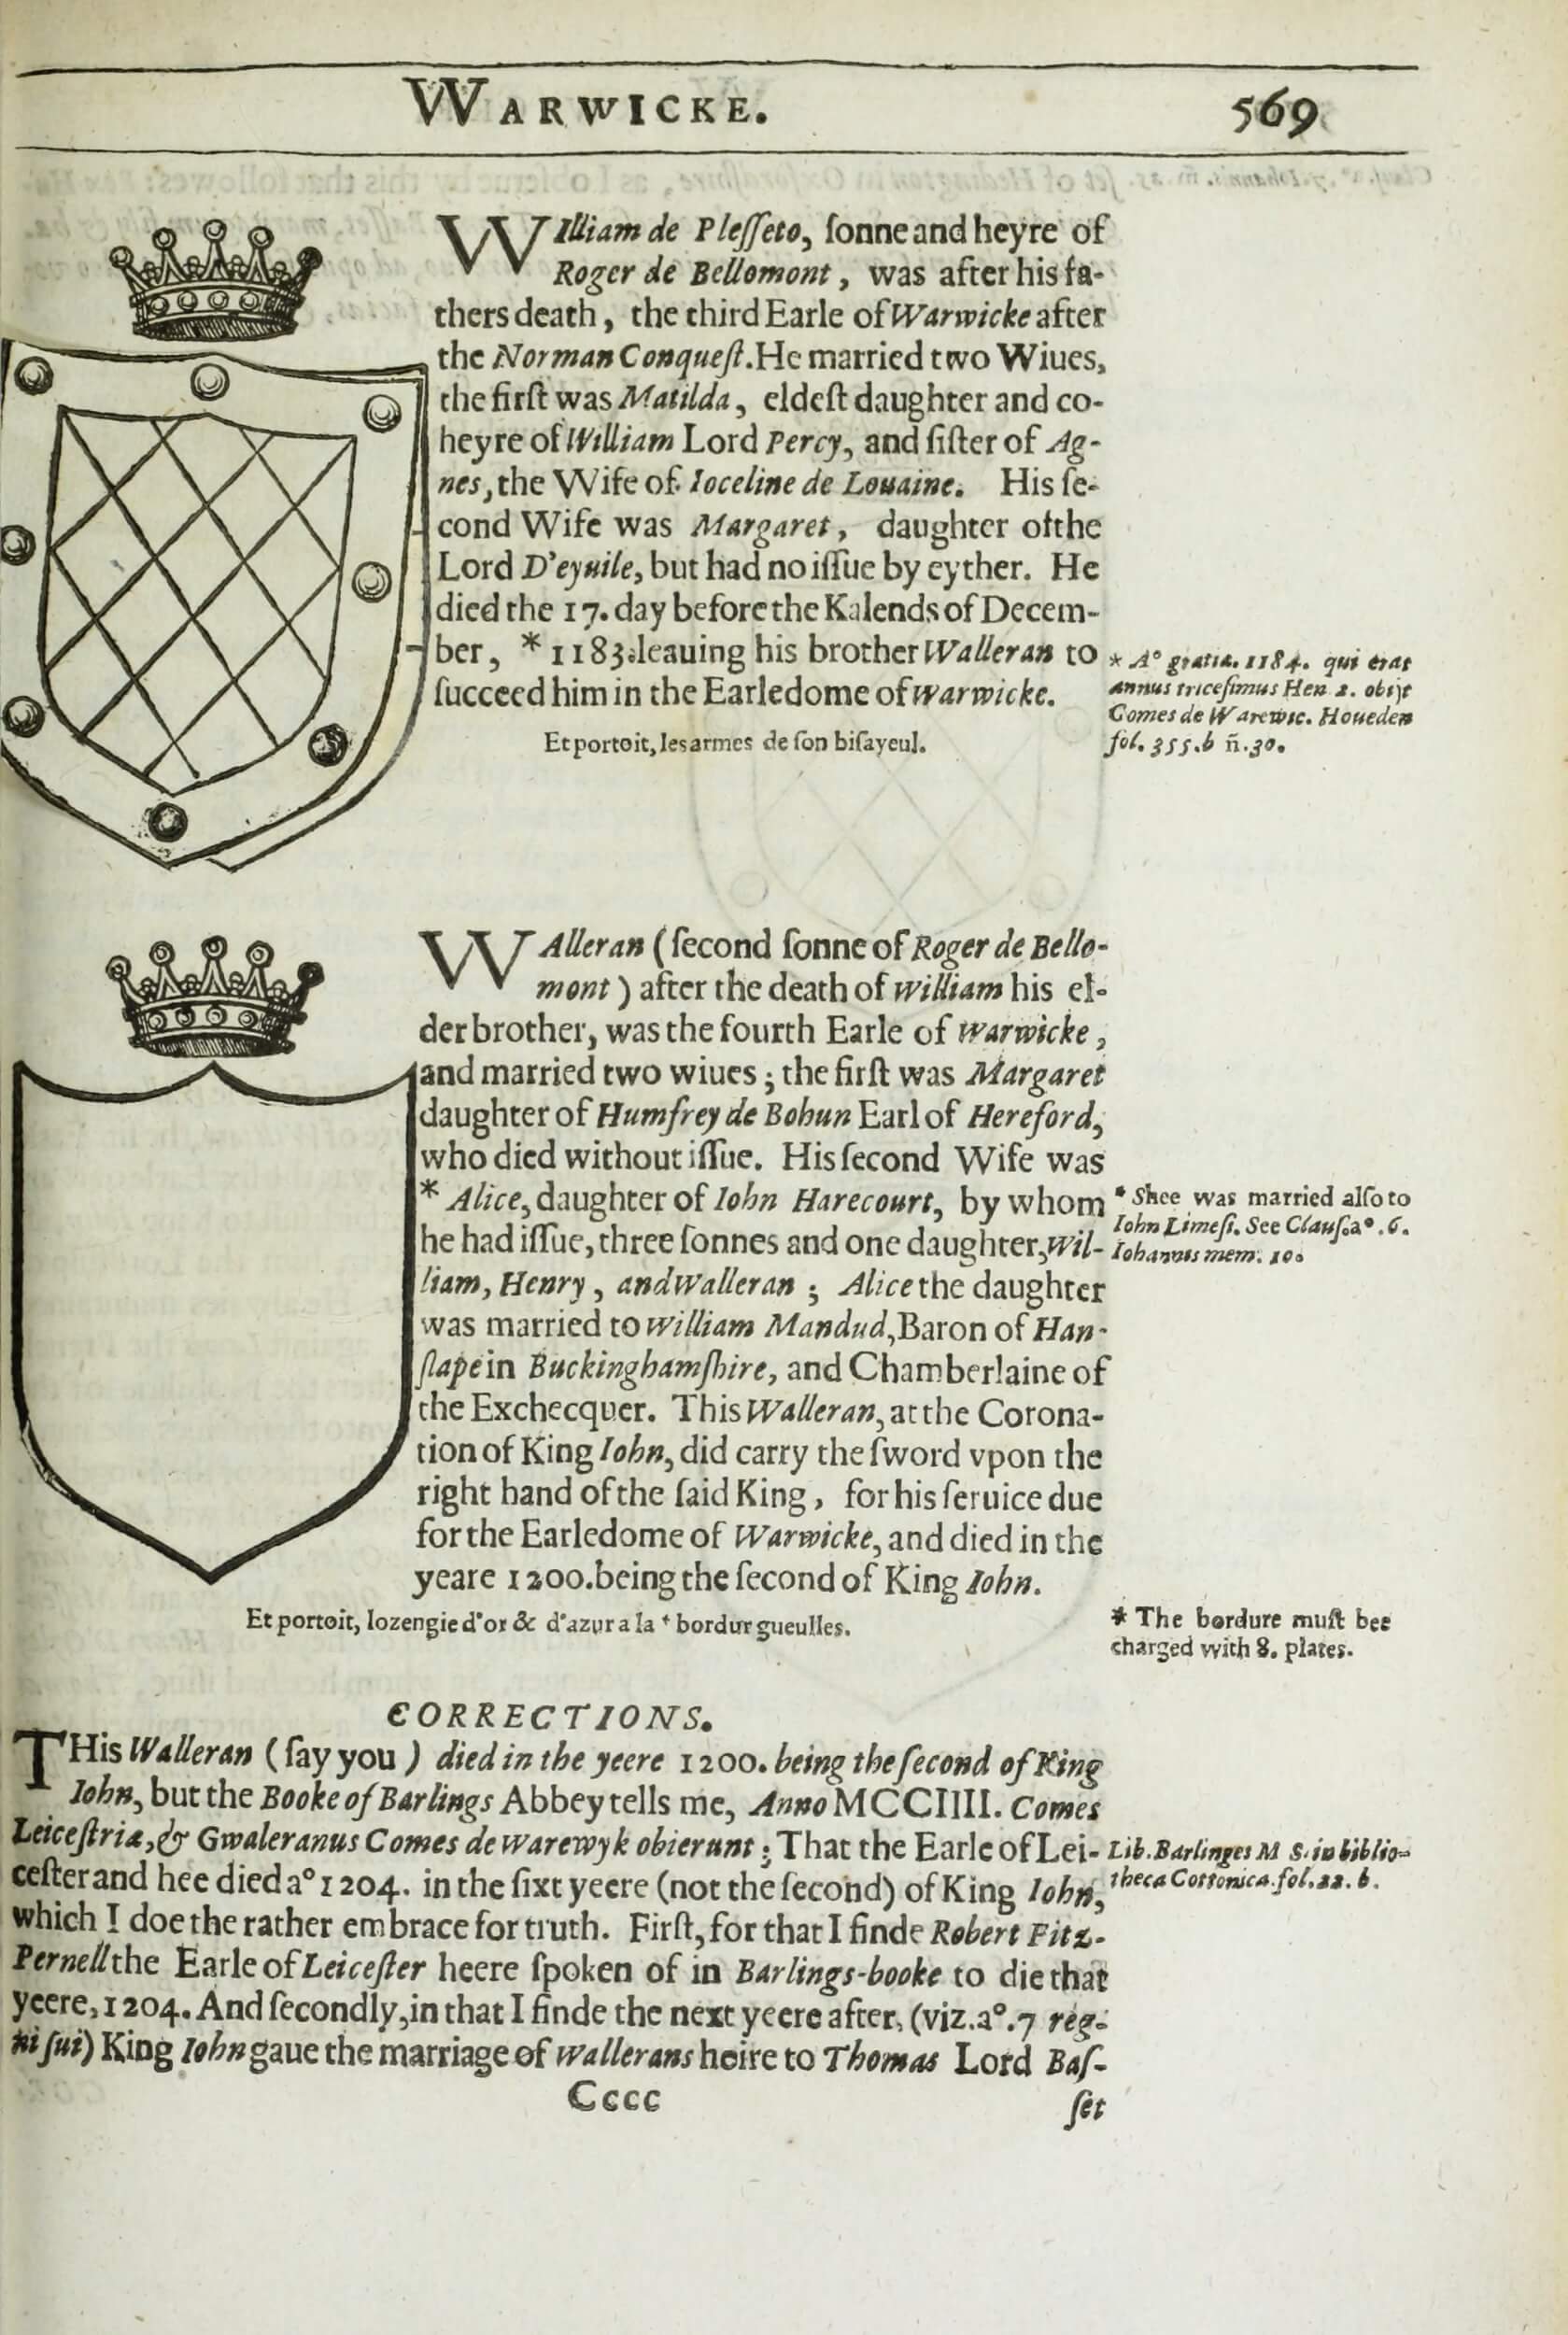 WARWICKE.
569
WIlliam de Pleſſeto, ſonne and heyre of
Roger de Bellomont, was after his fa-
thers death, the third Earle of Warwicke after
the Norman Conqueſt. He married two Wiues,
the firſt was Matilda, eldeſt daughter and co-
heyre of William Lord Percy, and ſiſter of Ag-
nes, the Wife of Ioceline de Louaine. His ſe-
cond Wife was Margaret, daughter of the
Lord D'eyuile, but had no iſſue by eyther. He
died the 17. day before the Kalends of Decem-
ber, * 1183. leauing his brother Walleran to
ſucceed him in the Earledome of Warwicke.
Et portoit, les armes de ſon biſayeul.
* A° gratia. 1184. qui erat
annus triceſimus Hen 2. obijt
Comes de Warewic. Houeden
fol. 355.b ñ.30.
WAlleran (ſecond ſonne of Roger de Bello-
mont) after the death of William his el-
der brother, was the fourth Earle of Warwicke,
and married two wiues; the firſt was Margaret
daughter of Humfrey de Bohun Earl of Hereford,
who died without iſſue. His ſecond Wife was
* Alice, daughter of Iohn Harecourt, by whom
he had iſſue, three ſonnes and one daughter, Wil-
liam, Henry, and Walleran; Alice the daughter
was married to William Mandud, Baron of Han-
ſlape in Buckinghamſhire, and Chamberlaine of
the Exchecquer. This Walleran, at the Corona-
tion of King Iohn, did carry the ſword vpon the
right hand of the ſaid King, for his ſeruice due
for the Earledome of Warwicke, and died in the
yeare 1200. being the ſecond of King Iohn.
* Shee was married alſo to
Iohn Limeſi. See Clauſ. a°. 6.
Iohannis mem. 10.
Et portoit, lozengie d'or & d'azur a la * bordur gueulles.
* The bordure muſt bee
charged with 8. plates.
CORRECTIONS.
THis Walleran (ſay you) died in the yeere 1200. being the ſecond of King
Iohn, but the Booke of Barlings Abbey tells me, Anno MCCIIII. Comes
Leiceſtriæ, & Gwaleranus Comes de Warewyk obierunt; That the Earle of Lei-
ceſter and hee died a° 1204. in the ſixt yeere (not the ſecond) of King Iohn,
which I doe the rather embrace for truth. Firſt, for that I finde Robert Fitz-
Pernell the Earle of Leiceſter heere ſpoken of in Barlings-booke to die that
yeere, 1204. And ſecondly, in that I finde the next yeere after, (viz. a°. 7 reg-
ni ſui) King Iohn gaue the marriage of Wallerans heire to Thomas Lord Baſ-
Lib. Barlinges M S. in biblio-
theca Cottonica. fol. 22. b.
Cccc
ſet